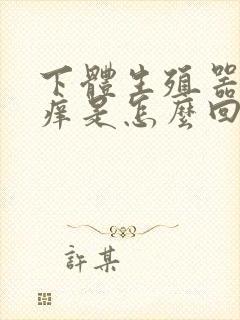 下體生殖器
痒是怎麼回
許某